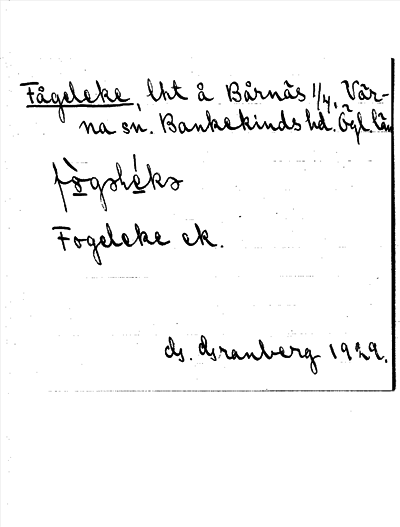 Fågeleke, lht å Bårnäs 1/4, Vår-
na sn. Bankekinds hd. Ögl. län
Fogeleke ek.
Granberg 1929.